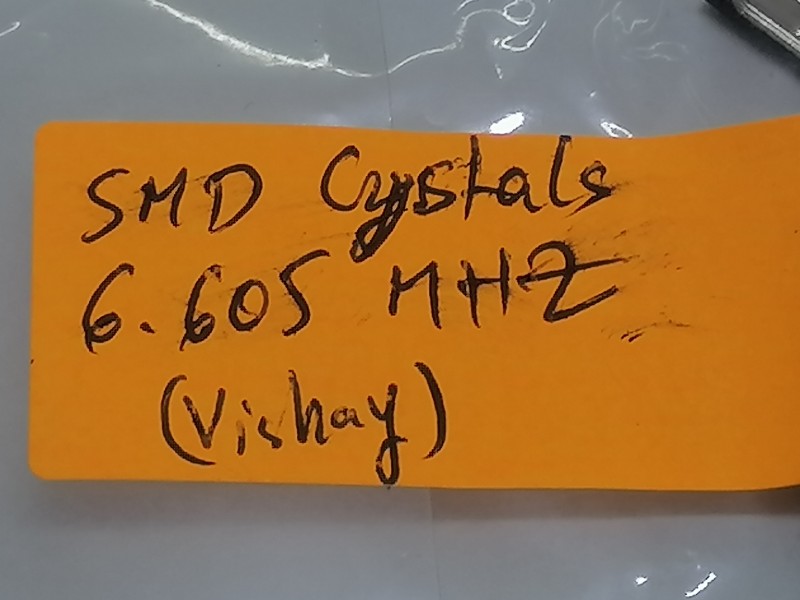 SMD Cyystals
6.605 MHZ
(Vishay)